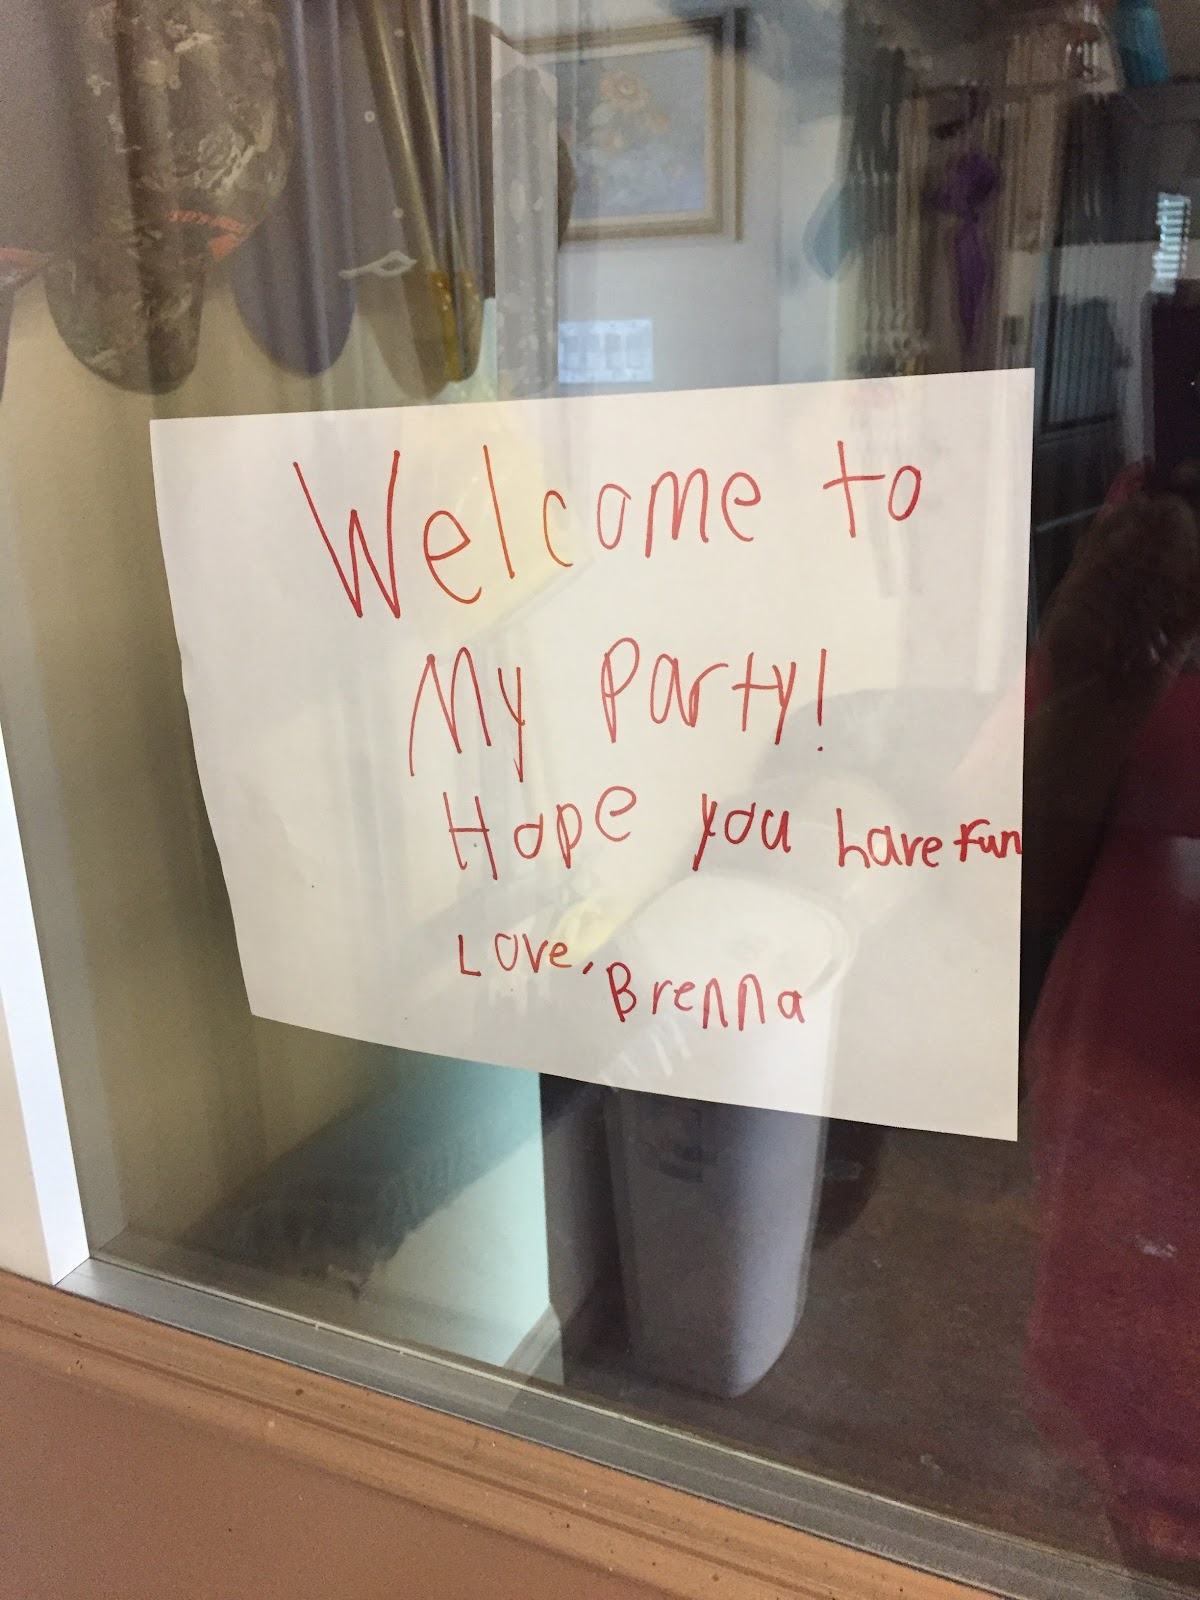 Welcome to
My Party!
Hope you have fun
Love, Brenna